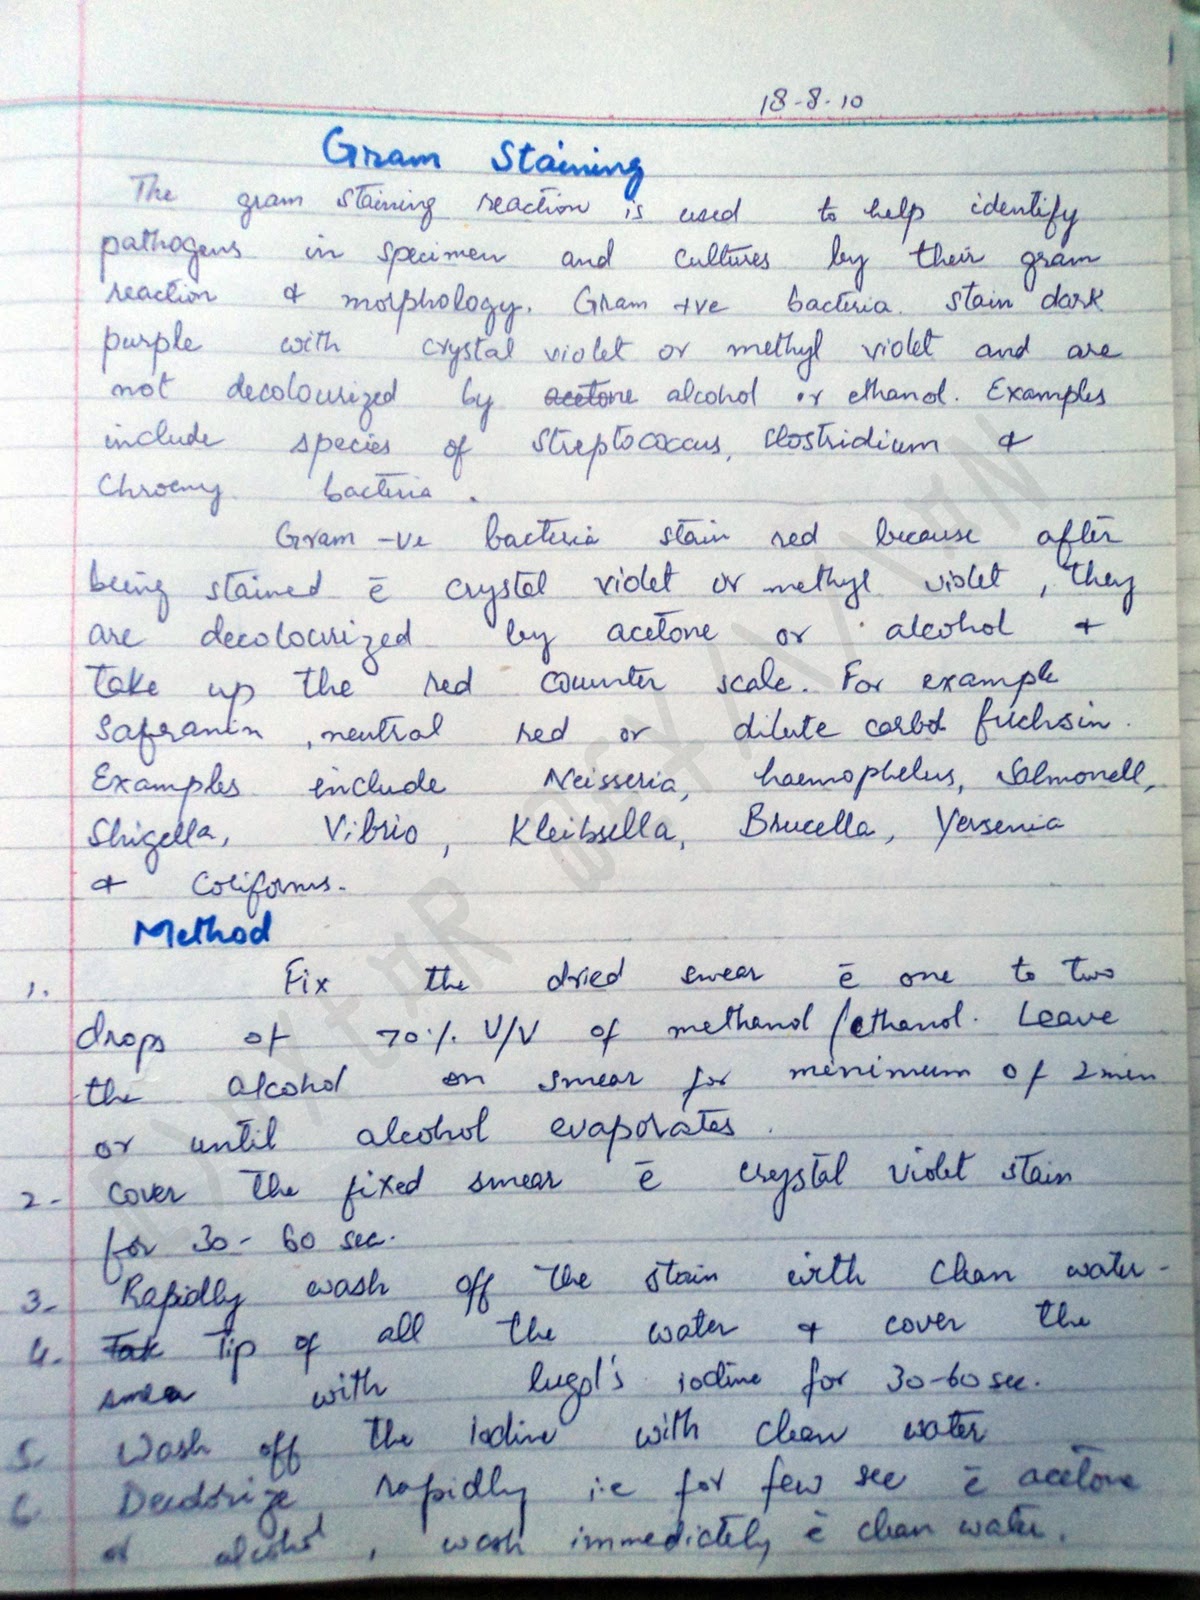 18-8-10
Gram Staining
The gram staining reaction is used to help identify
pathogens in specimen and cultures by their gram
reaction & morphology. Gram +ve bacteria stain dark
purple with crystal violet or methyl violet and are
not decolourized by acetone alcohol or ethanol. Examples
include species of streptococcus, Clostridium &
bacteria.
Gram -ve bacteria stain red because after
being stained ē crystal violet or methyl violet, they
are decolourized by acetone or alcohol &
take up the red counter scale. For example
Safranin, neutral red or dilute carbol fuchsin.
Examples include Neisseria, haemophelus, Salmonell,
Shigella, Vibrio, Kleibsella, Brucella, Yersenia
& Coliforms.
Method
1. Fix the dried smear ē one to two
drops of 70% V/V of methanol/ethanol. Leave
the alcohol on smear for minimum of 2min
or until alcohol evaporates.
2- cover the fixed smear ē crystal violet stain
for 30-60 sec.
3- Rapidly wash off the stain with clean water-
4- Tak Tip of all the water & cover the
smear with lugol's iodine for 30-60 sec.
5. Wash off the Iodine with clean water
6 rapidly i.e for few sec ē acetone
or alcohol, wash immedictely ē clean water.